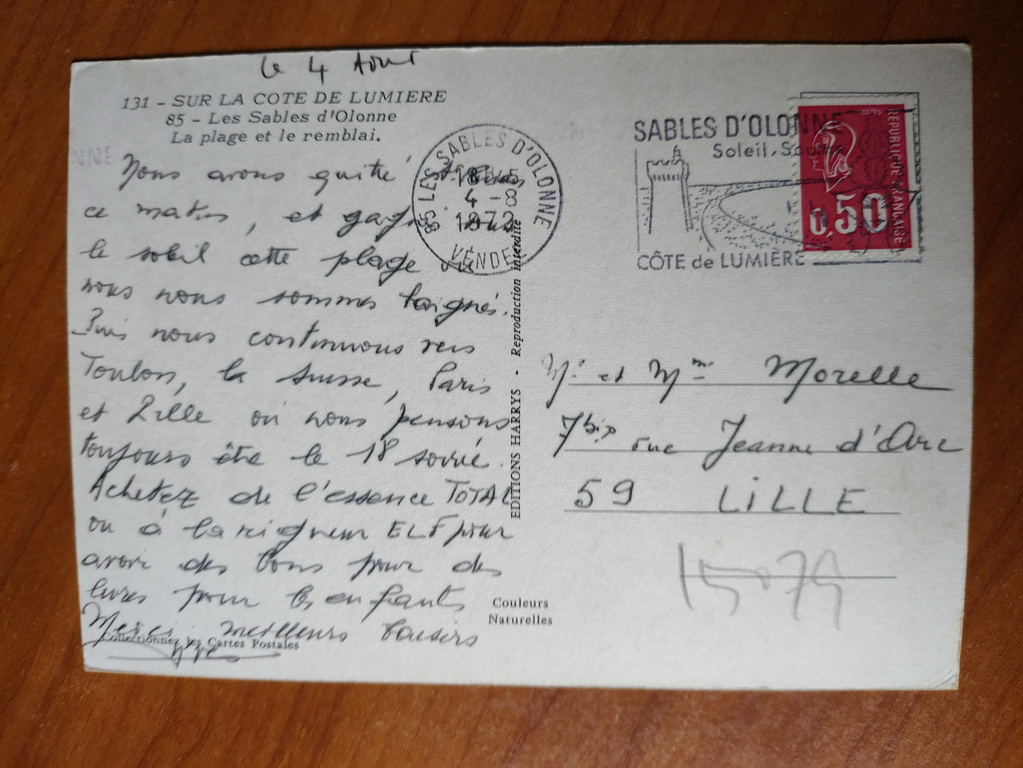 le 4 Aout
131 - SUR LA COTE DE LUMIERE
85 - Les Sables d'Olonne
La plage et le remblai.
Nous avons quitté
ce matin, et
le soleil cette plage où
nous nous sommes baignés.
Puis nous continuons vers
Toulon, la Suisse, Paris
et Lille où nous pensons
toujours être le 18 soirée.
Achetez de l'essence TOTAL
ou à la rigueur ELF pour
avoir des bons pour des
livres pour les enfants
Merci, meilleurs baisers
Collectionnez les Cartes Postales
85 LES SABLES D'OLONNE
4 -8
1972
VENDEE
EDITIONS HARRYS - Reproduction interdite
Couleurs
Naturelles
SABLES D'OLONNE
Soleil,
CÔTE de LUMIERE
REPUBLIQUE FRANÇAISE
0,50
Mr et Mme Morelle
7bis rue Jeanne d'Arc
59 LILLE
15079